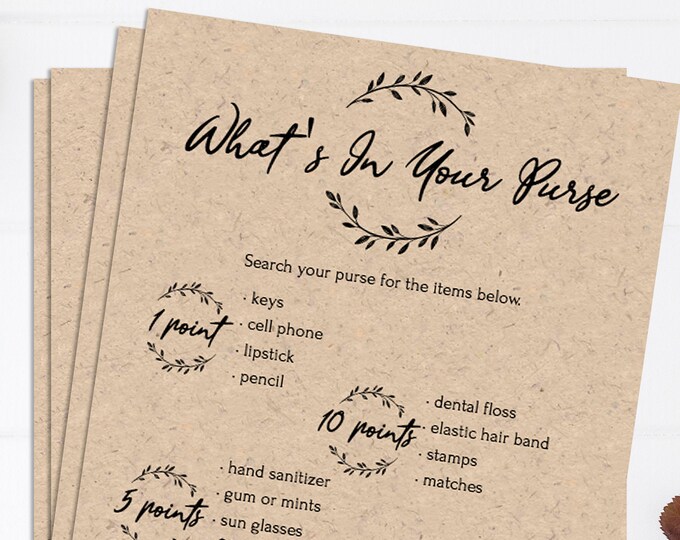 What's In Your Purse
Search your purse for the items below.
1 point
· keys
· cell phone
· lipstick
· pencil
10 points
· dental floss
· elastic hair band
· stamps
· matches
5 points
· hand sanitizer
· gum or mints
· sun glasses